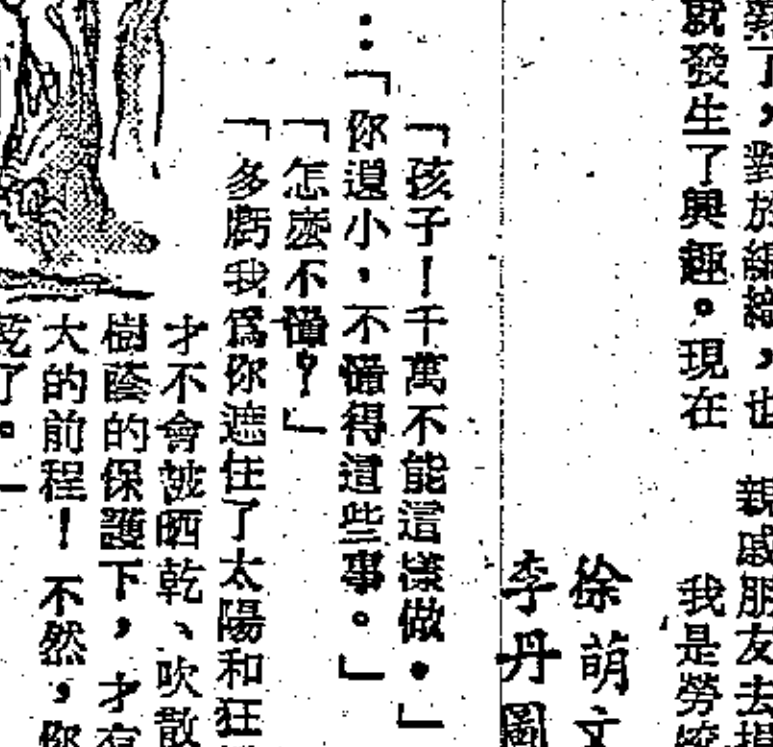 熱了，對於編織，也
親戚朋友去
就發生了興趣。現在
我是勞
徐萌文
李丹圖
「孩子！千萬不能這樣做。」
：「你還小，不懂得這些事。」
「怎麼不懂？」
「多虧我爲你遮住了太陽和狂
才不會被晒乾、吹散
樹蔭的保護下，才有
大的前程！不然，你
乾了。」